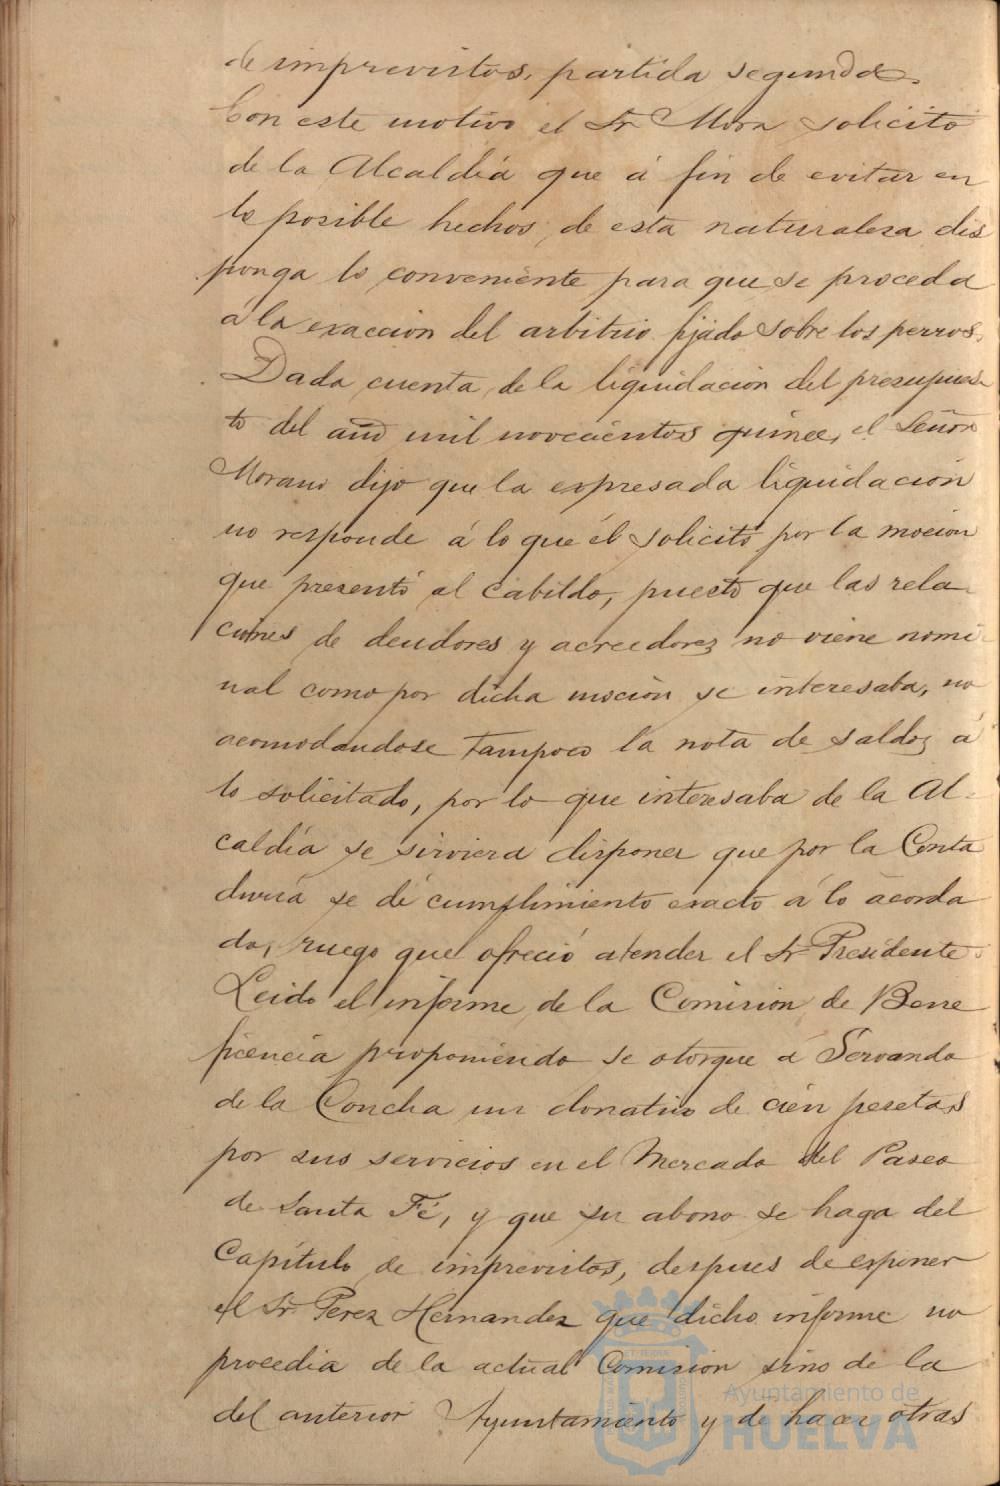 de imprevistos, partida segunda.
Con este motivo el Sr. Mora solicitó
de la Alcaldía que á fin de evitar en
lo posible hechos de esta naturaleza dis
ponga lo conveniente para que se proceda
á la exacción del arbitrio fijado sobre los perros.
Dada cuenta de la liquidación del presupues
to del año mil novecientos quince, el Señor
Morano dijo que la expresada liquidación
no responde á lo que él solicitó por la moción
que presentó al Cabildo, puesto que las rela
ciones de deudores y acreedores no viene nomi
nal como por dicha moción se interesaba, no
acomodandose tampoco la nota de saldos á
lo solicitado, por lo que interesaba de la Al-
caldía se sirviera disponer que por la Conta
duría se dé cumplimiento exacto á lo acorda
do, ruego que ofreció atender el Sr. Presidente.
Leido el informe de la Comisión de Bene
ficencia proponiendo se otorgue á Servando
de la Concha un donativo de cien pesetas
por sus servicios en el Mercado del Paseo
de Santa Fé, y que su abono se haga del
Capítulo de imprevistos, despues de exponer
el Sr. Perez Hernandez que dicho informe no
procedia de la actual Comisión sino de la
del anterior Ayuntamiento y de hacer otras
Ayuntamiento de
HUELVA